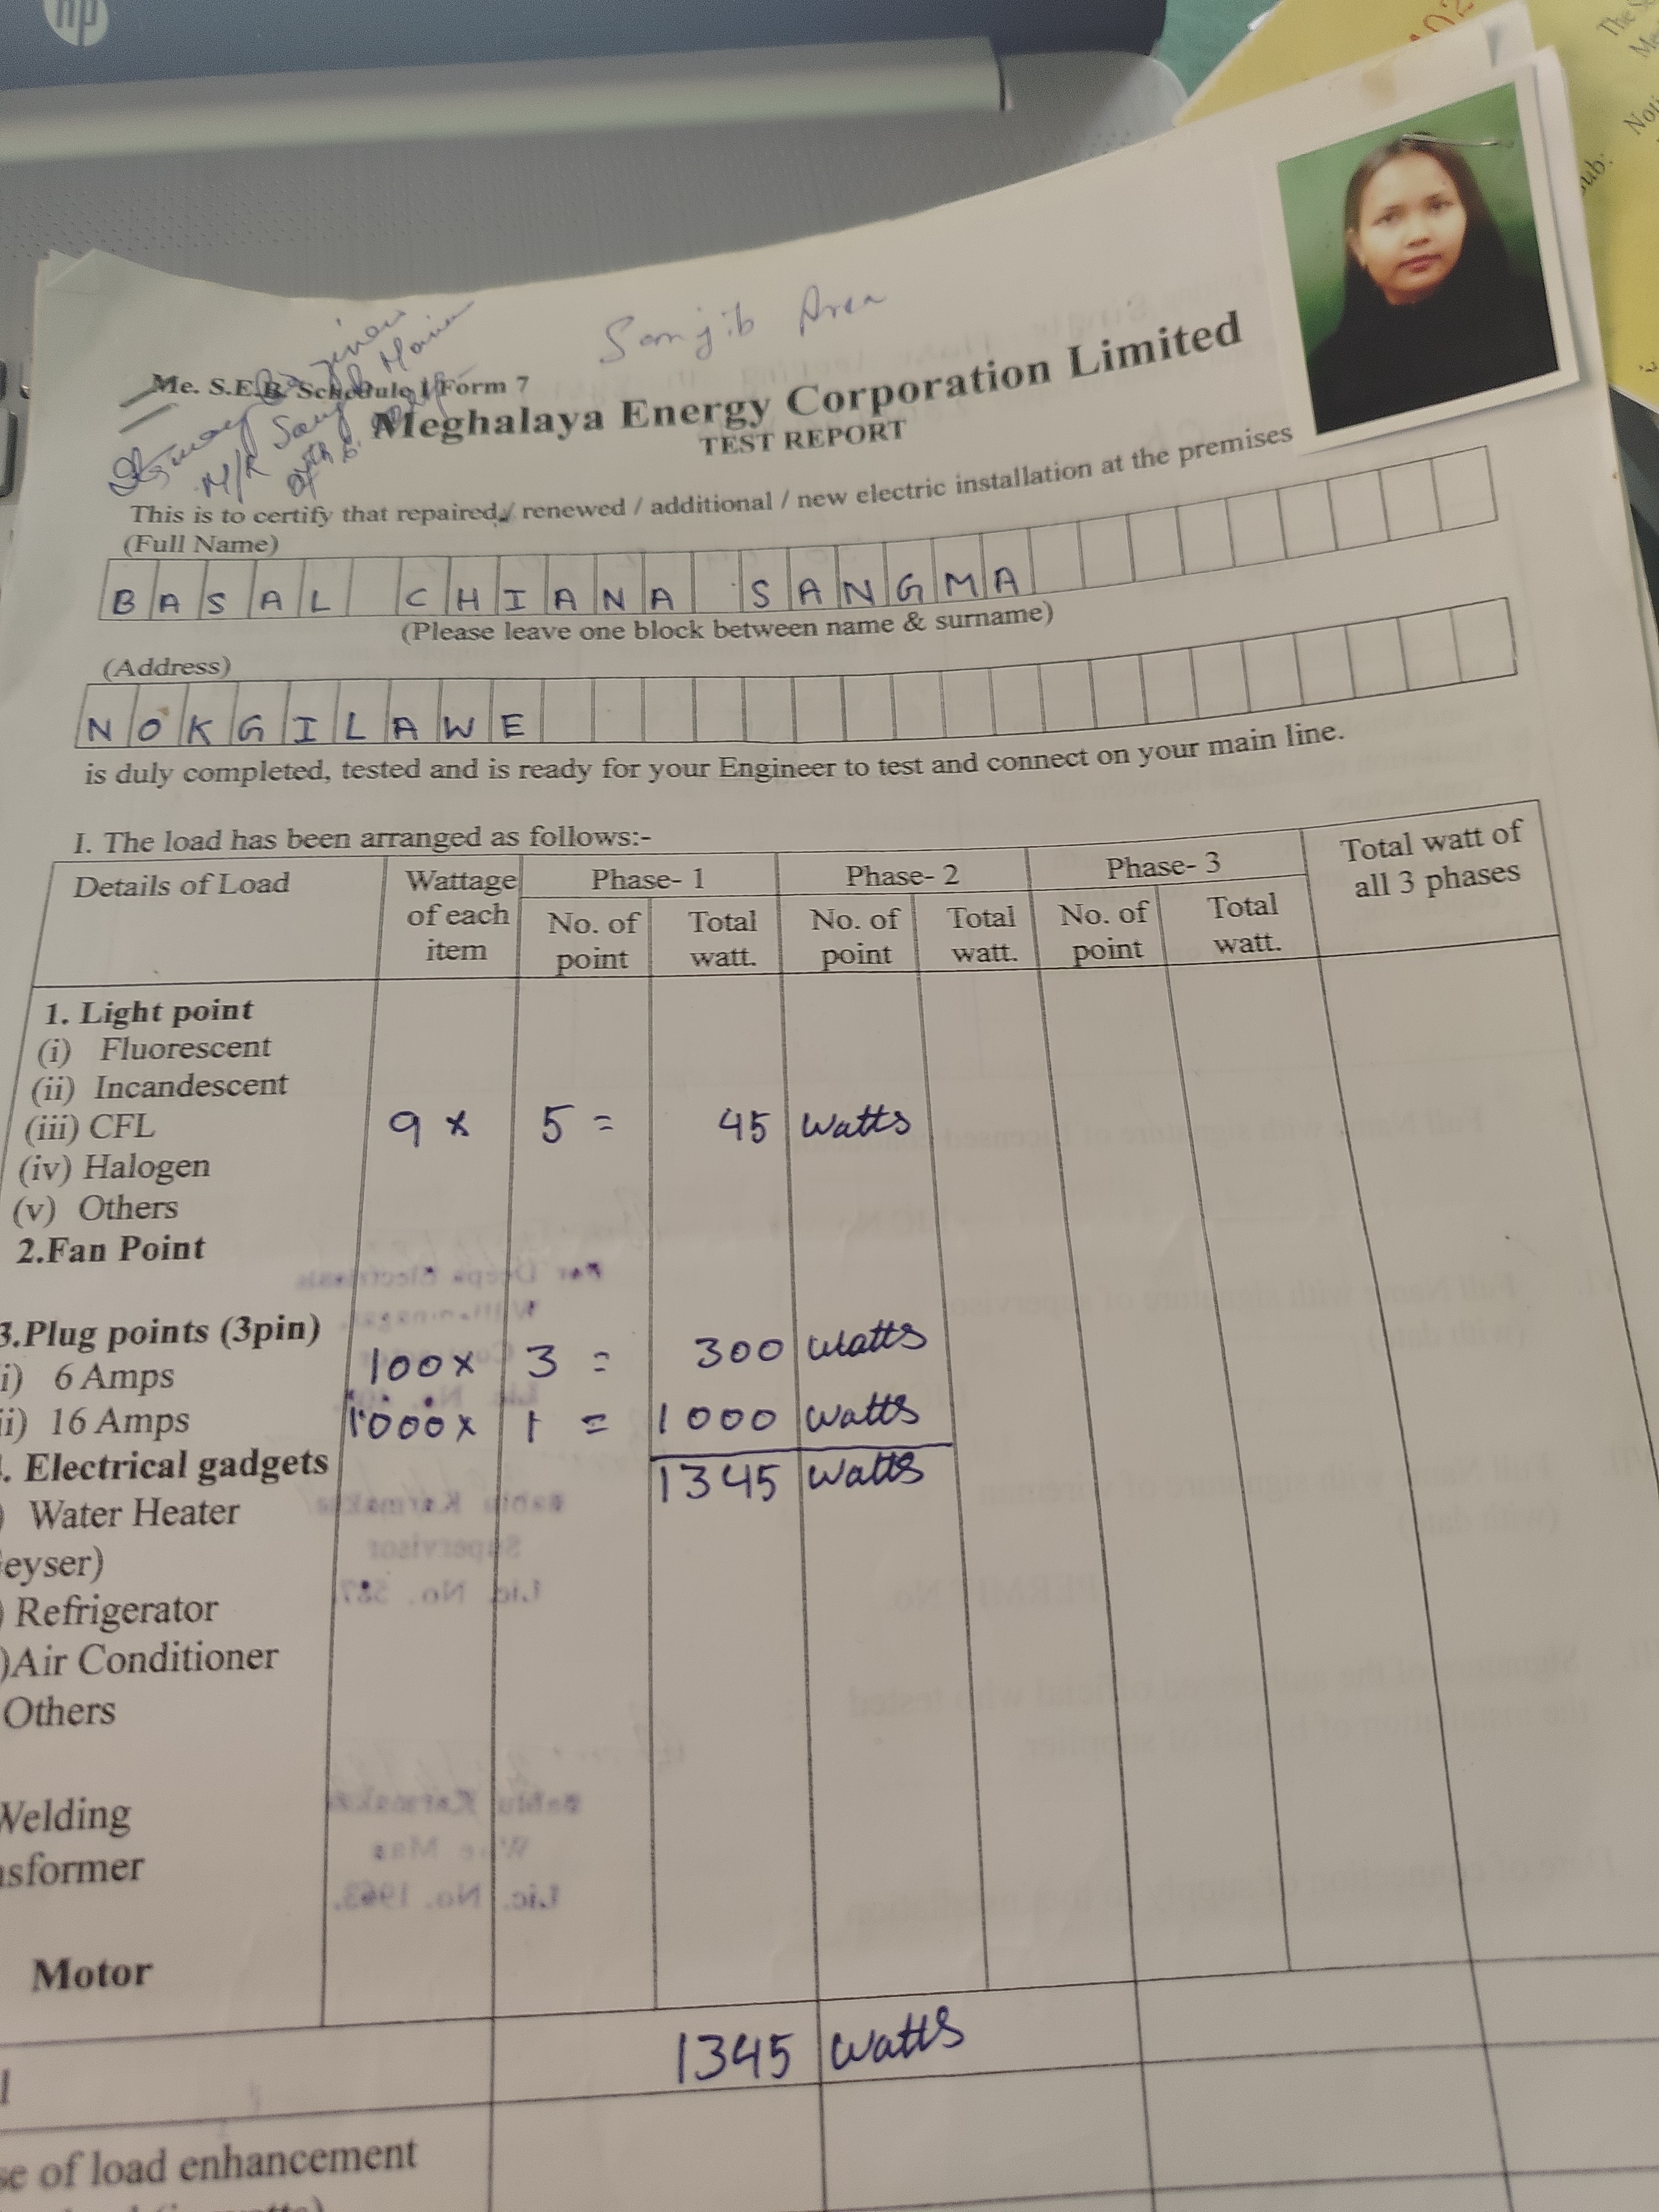 hp
Sanjib Area
Me. S.E.B. Schedule I Form 7
Meghalaya Energy Corporation Limited
TEST REPORT
This is to certify that repaired / renewed / additional / new electric installation at the premises
(Full Name)
BASAL CHIANA SANGMA
(Please leave one block between name & surname)
(Address)
NOKGILAWE
is duly completed, tested and is ready for your Engineer to test and connect on your main line.
I. The load has been arranged as follows:-
Details of Load Wattage of each item Phase- 1 Phase- 2 Phase- 3 Total watt of all 3 phases
No. of point Total watt. No. of point Total watt. No. of point Total watt.
1. Light point
(i) Fluorescent
(ii) Incandescent
(iii) CFL 9 x 5 = 45 watts
(iv) Halogen
(v) Others
2.Fan Point
3.Plug points (3pin)
i) 6 Amps 100 x 3 = 300 watts
ii) 16 Amps 1000 x 1 = 1000 watts
. Electrical gadgets 1345 watts
) Water Heater
eyser)
) Refrigerator
)Air Conditioner
Others
Welding
nsformer
Motor
1345 watts
se of load enhancement